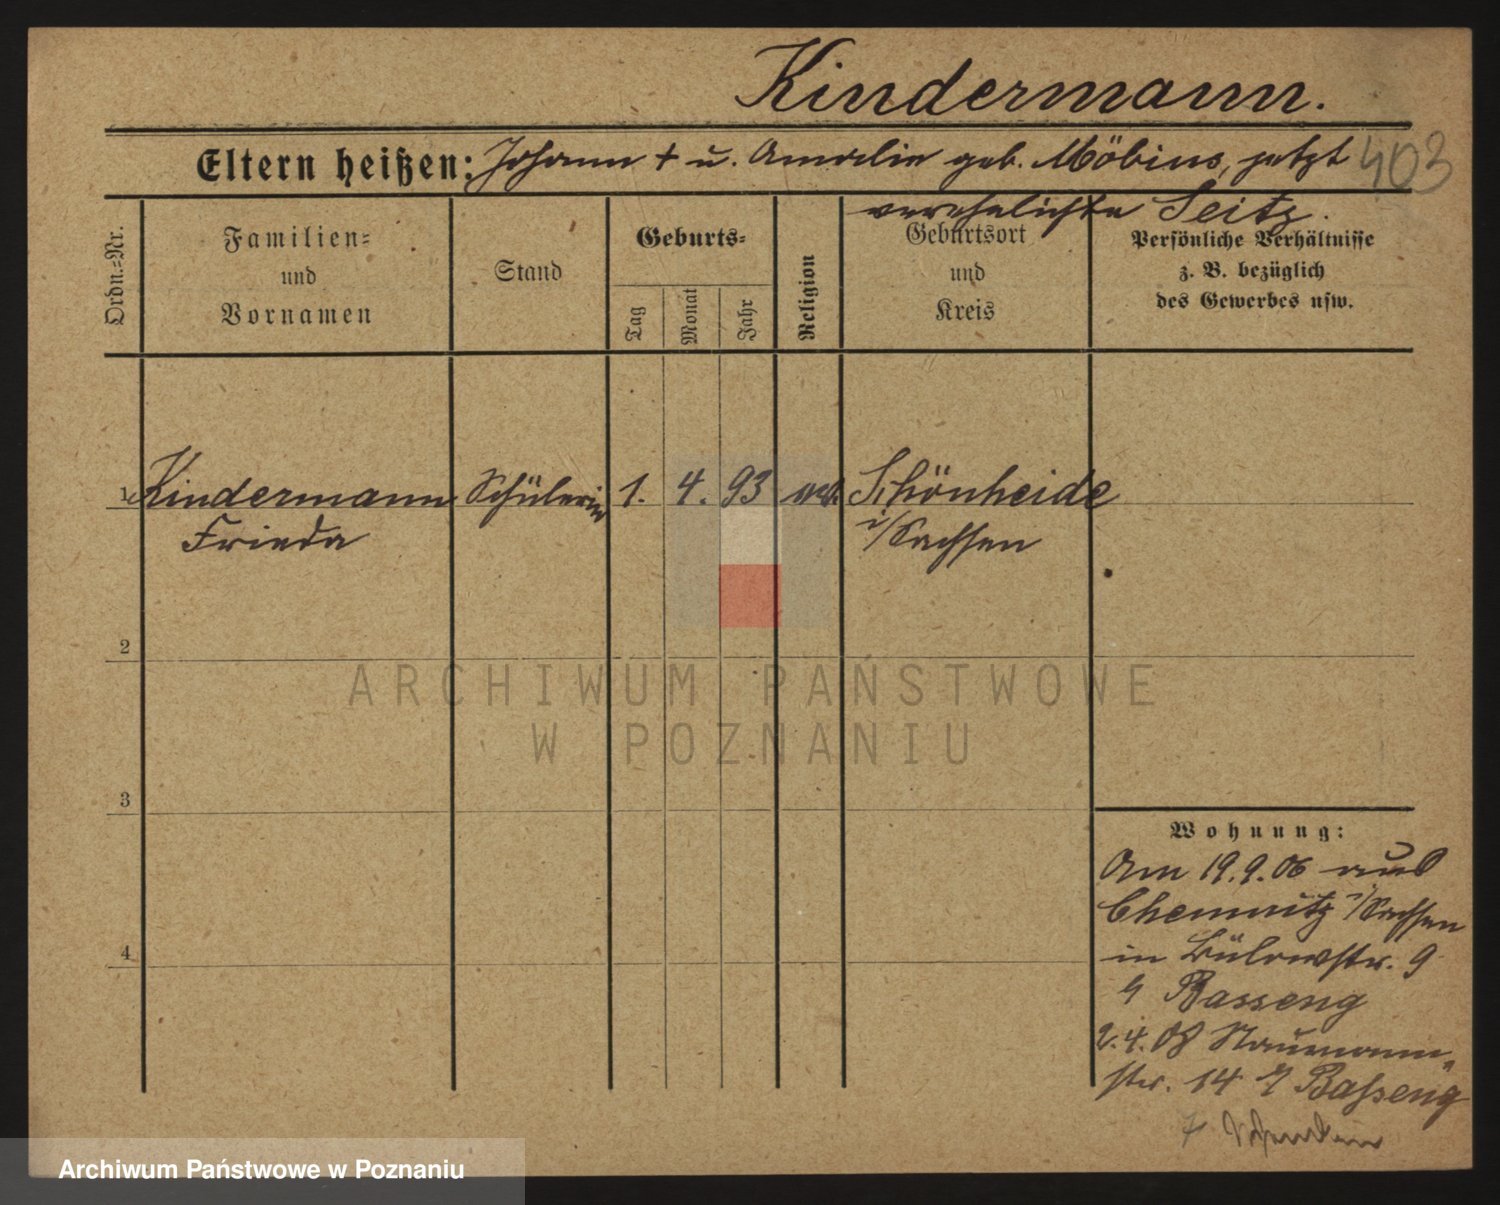 Kindermann.
Eltern heißen: Johann † u. Amalie geb. Möbius, jetzt 403
verehelichte Seitz.
Ordn.-Nr.
Familien-
und
Vornamen
Stand
Geburts-
Tag
Monat
Jahr
Religion
Geburtsort
und
Kreis
Persönliche Verhältnisse
z. B. bezüglich
des Gewerbes usw.
1 Kindermann Schülerin 1. 4. 93 Schönheide
Frieda i/Sachsen
2
ARCHIWUM PAŃSTWOWE
W POZNANIU
3
Wohnung:
Am 19.9.06 aus
Chemnitz i/Sachsen
in Bülowstr. 9
Basseng
2.4.08 Naumann-
str. 14 Baßeng
4
Archiwum Państwowe w Poznaniu